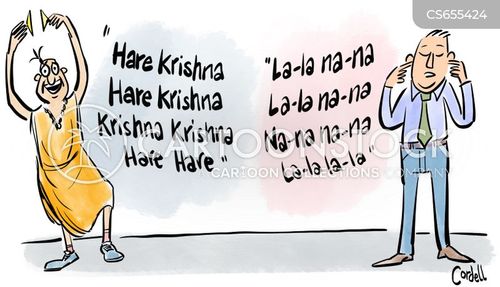 CS655424
"Hare Krishna
Hare Krishna
Krishna Krishna
Hare Hare"
"La-la na-na
La-la na-na
Na-na na-na
La-la la-la"
CARTOONSTOCK
CARTOON COLLECTIONS COMPANY
Cordell